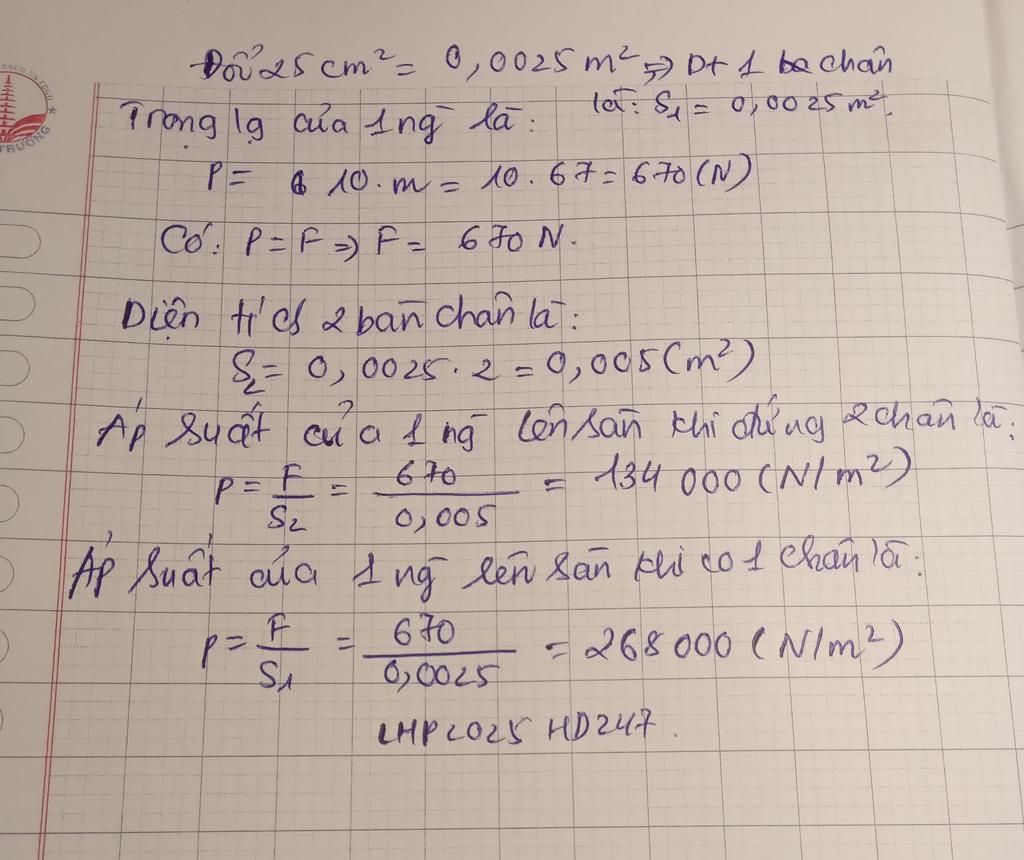 Đổi 25 cm² = 0,0025 m² => Dt 1 ba chân
là: S₁ = 0,0025 m².
Trọng lg của 1 ng là:
P = 10.m = 10.67 = 670 (N)
Có: P = F => F = 670 N.
Diện tích 2 bàn chân là:
S₂ = 0,0025.2 = 0,005 (m²)
Áp suất của 1 ng lên sàn khi đứng 2 chân là:
p = F/S₂ = 670/0,005 = 134 000 (N/m²)
Áp suất của 1 ng lên sàn khi co 1 chân là:
p = F/S₁ = 670/0,0025 = 268 000 (N/m²)
LHP2025 HD247.
TRƯỜNG